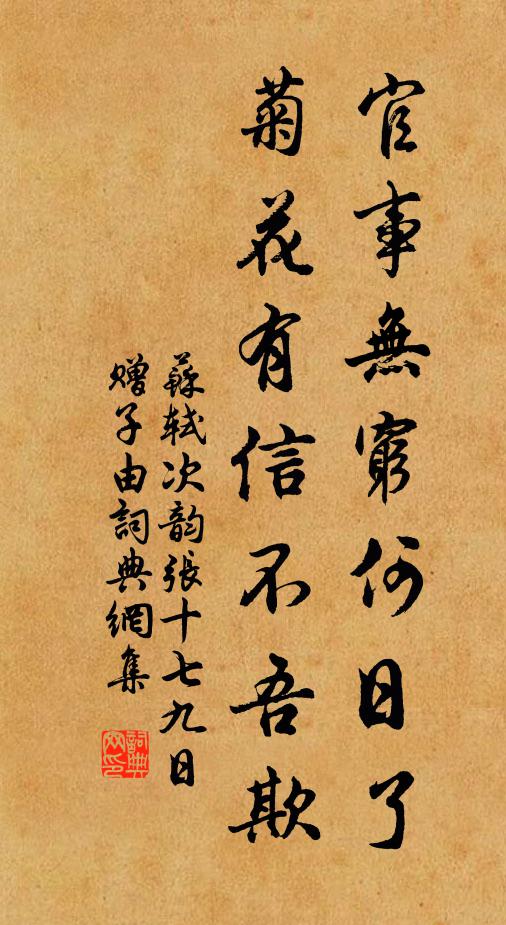 官事無窮何日了
菊花有信不吾欺
蘇軾次韵張十七九日
贈子由詞典網集
詞典网印